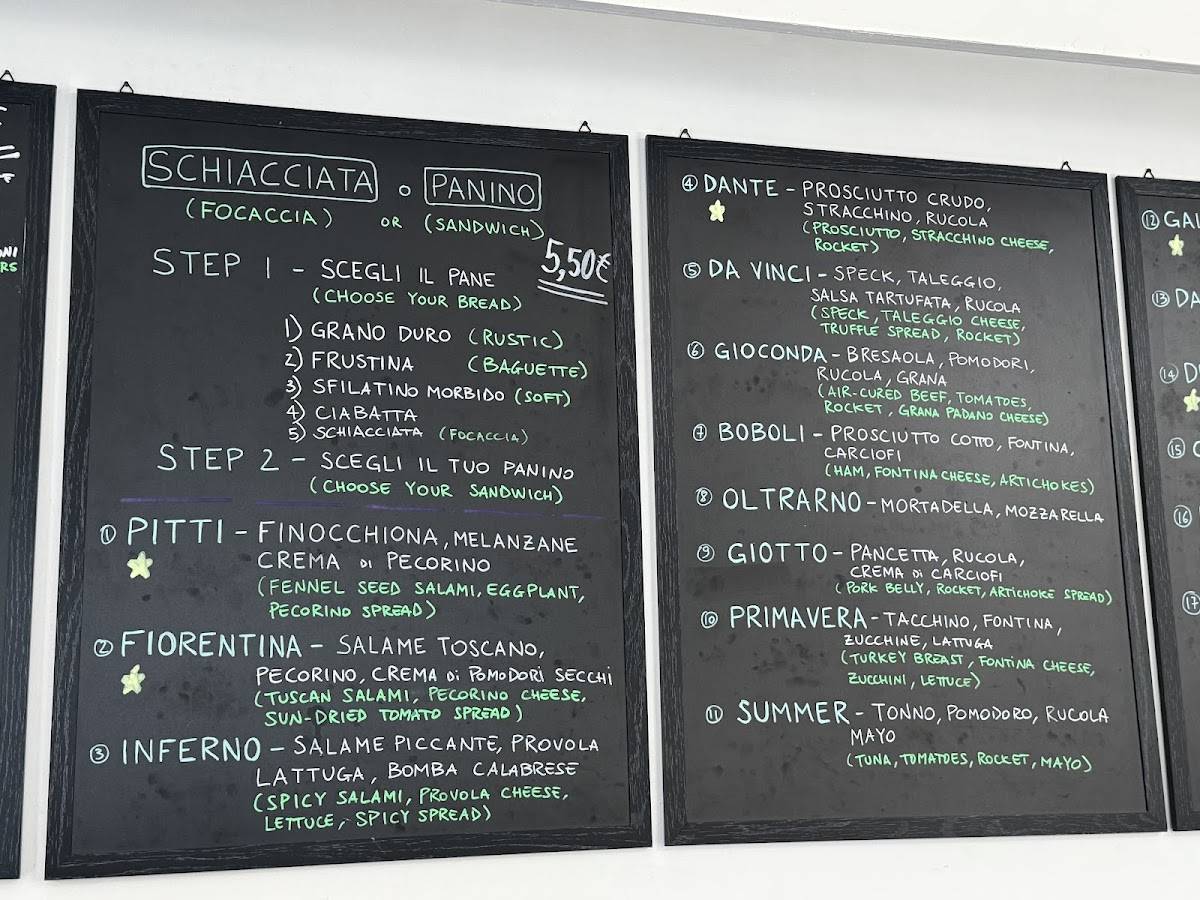 ONI
RS
SCHIACCIATA O PANINO
(FOCACCIA) OR (SANDWICH)
5,50€
STEP 1 - SCEGLI IL PANE
(CHOOSE YOUR BREAD)
1) GRANO DURO (RUSTIC)
2) FRUSTINA (BAGUETTE)
3) SFILATINO MORBIDO (SOFT)
4) CIABATTA
5) SCHIACCIATA (FOCACCIA)
STEP 2 - SCEGLI IL TUO PANINO
(CHOOSE YOUR SANDWICH)
① PITTI - FINOCCHIONA, MELANZANE
CREMA di PECORINO
(FENNEL SEED SALAMI, EGGPLANT,
PECORINO SPREAD)
② FIORENTINA - SALAME TOSCANO,
PECORINO, CREMA di POMODORI SECCHI
(TUSCAN SALAMI, PECORINO CHEESE,
SUN-DRIED TOMATO SPREAD)
③ INFERNO - SALAME PICCANTE, PROVOLA
LATTUGA, BOMBA CALABRESE
(SPICY SALAMI, PROVOLA CHEESE,
LETTUCE, SPICY SPREAD)
④ DANTE - PROSCIUTTO CRUDO,
STRACCHINO, RUCOLA
(PROSCIUTTO, STRACCHINO CHEESE,
ROCKET)
⑤ DA VINCI - SPECK, TALEGGIO,
SALSA TARTUFATA, RUCOLA
(SPECK, TALEGGIO CHEESE,
TRUFFLE SPREAD, ROCKET)
⑥ GIOCONDA - BRESAOLA, POMODORI,
RUCOLA, GRANA
(AIR-CURED BEEF, TOMATOES,
ROCKET, GRANA PADANO CHEESE)
⑦ BOBOLI - PROSCIUTTO COTTO, FONTINA,
CARCIOFI
(HAM, FONTINA CHEESE, ARTICHOKES)
⑧ OLTRARNO - MORTADELLA, MOZZARELLA
⑨ GIOTTO - PANCETTA, RUCOLA,
CREMA di CARCIOFI
(PORK BELLY, ROCKET, ARTICHOKE SPREAD)
⑩ PRIMAVERA - TACCHINO, FONTINA,
ZUCCHINE, LATTUGA
(TURKEY BREAST, FONTINA CHEESE,
ZUCCHINI, LETTUCE)
⑪ SUMMER - TONNO, POMODORO, RUCOLA
MAYO
(TUNA, TOMATOES, ROCKET, MAYO)
⑫
⑬
⑭
⑮
⑯
⑰